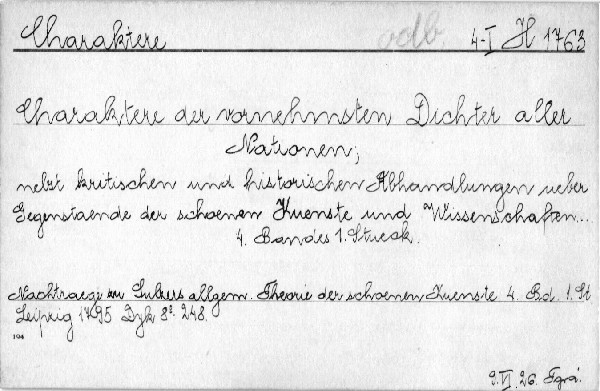 Charaktere odb. 4-I H 1763
Charaktere der vornehmsten Dichter aller
Nationen;
nebst kritischen und historischen Abhandlungen ueber
Gegenstaende der schoenen Kuenste und Wissenschaften...
4. Bandes 1. Stueck.
Nachtraege zu Sulzers allgem. Theorie der schoenen Kuenste 4. Bd. 1. St
Leipzig 1795 Dyk 8°. 248.
194
9.VI.26.